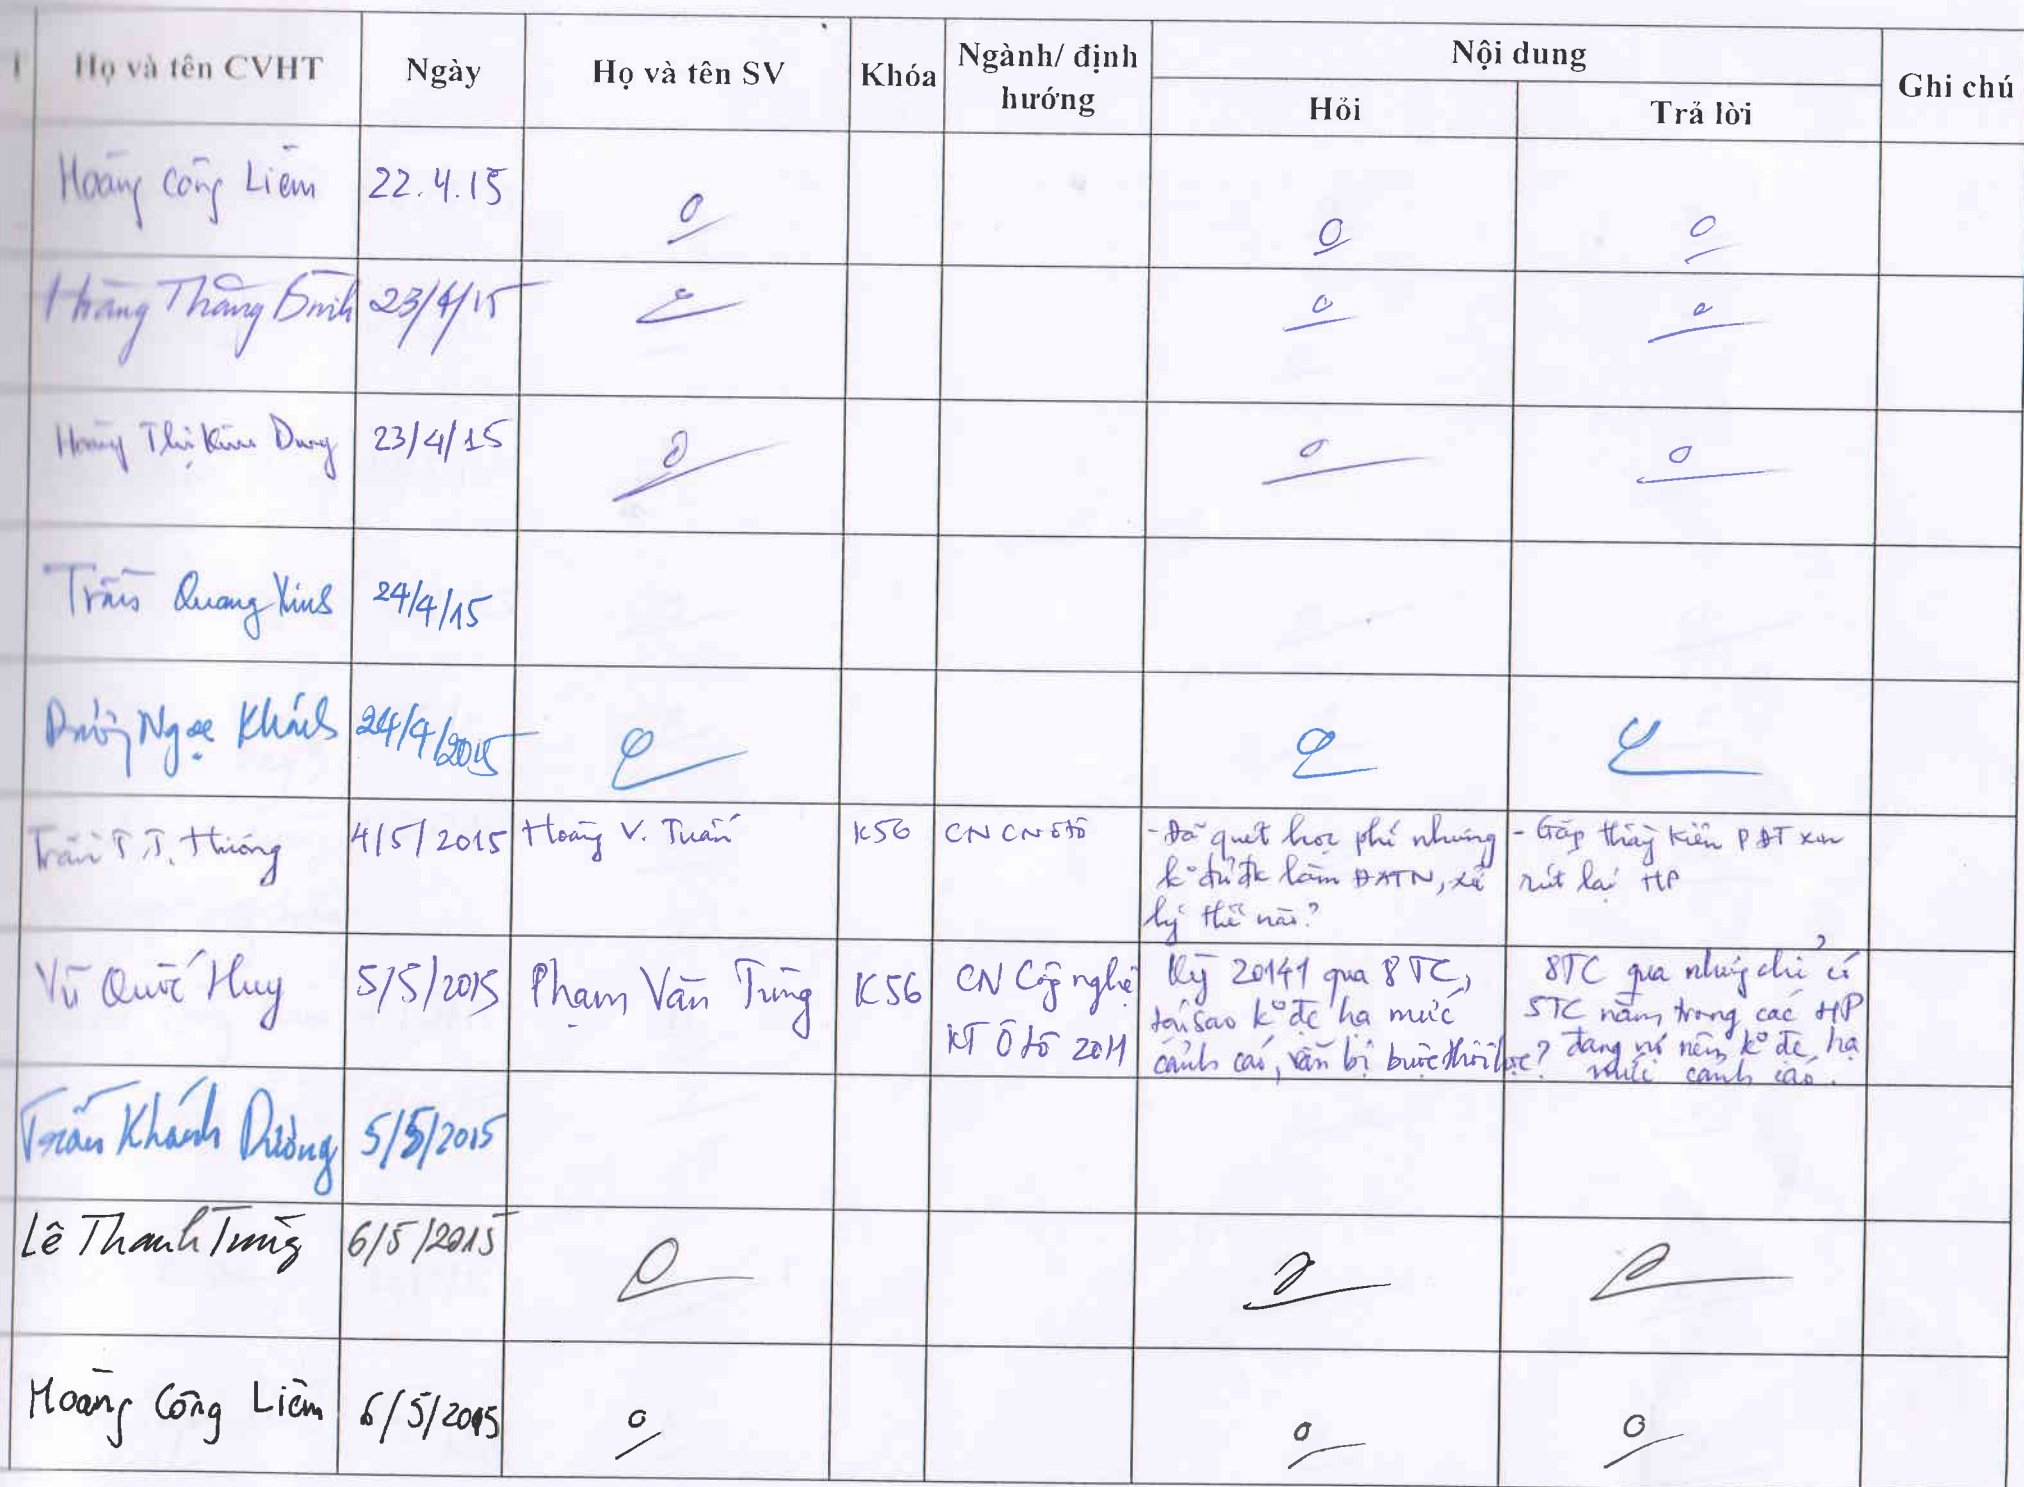 Họ và tên CVHT Ngày Họ và tên SV Khóa Ngành/ định hướng Nội dung Ghi chú
Hỏi Trả lời
Hoàng Công Liêm 22.4.15 0 0 0
Hoàng Thăng Bình 23/4/15 0 0 0
Hoàng Thị Kim Dung 23/4/15 0 0 0
Trần Quang Vinh 24/4/15
Dương Ngọc Khánh 24/4/2015
Trần T.T. Hương 4/5/2015 Hoàng V. Tuấn K56 CN CN ôtô
- Đã quẹt học phí nhưng
k° đủ đk làm ĐATN, xử
lý thế nào?
- Gặp thầy Kiên PĐT xin
rút lại HP
Vũ Quốc Huy 5/5/2015 Phạm Văn Tùng K56
CN Công nghệ
KT Ô tô 2011
Kỳ 20141 qua 8 TC,
tại sao k° đc hạ mức
cảnh cáo, vẫn bị buộc thôi học?
8TC qua nhưng chỉ có
5TC nằm trong các HP
đang nợ nên k° đc hạ
mức cảnh cáo.
Trần Khánh Dương 5/5/2015
Lê Thanh Tùng 6/5/2015 0
Hoàng Công Liêm 6/5/2015 0 0 0